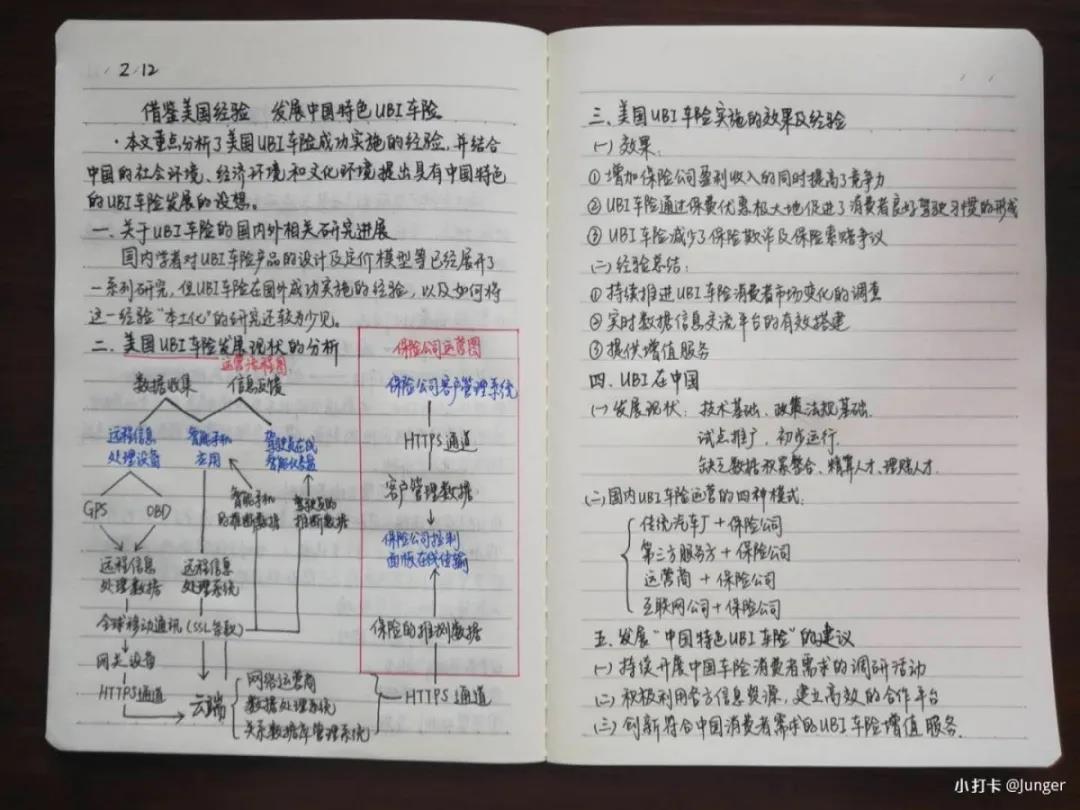 2/12
借鉴美国经验 发展中国特色UBI车险
·本文重点分析了美国UBI车险成功实施的经验,并结合
中国的社会环境、经济环境和文化环境提出具有中国特色
的UBI车险发展的设想。
一.关于UBI车险的国内外相关研究进展
国内学者对UBI车险产品的设计及定价模型等已经展开了
一系列研究,但UBI车险在国外成功实施的经验,以及如何将
这一经验"本土化"的研究还较为少见。
二.美国UBI车险发展现状的分析
运营流程图
数据收集 信息反馈
远程信息
处理设备
智能手机
应用
驾驶员在线
智能仪表盘
GPS OBD
智能手机
的推断数据
驾驶员的
推断数据
远程信息
处理数据
远程信息
处理系统
全球移动通讯(SSL条款)
网关设备
HTTPS通道
云端
网络运营商
数据处理系统
关系数据库管理系统
HTTPS通道
保险公司运营图
保险公司客户管理系统
HTTPS通道
客户管理数据
保险公司控制
面板在线传输
保险的推测数据
三.美国UBI车险实施的效果及经验
(一)效果:
①增加保险公司盈利收入的同时提高了竞争力
②UBI车险通过保费优惠极大地促进了消费者良好驾驶习惯的形成
③UBI车险减少了保险欺诈及保险索赔争议
(二)经验总结:
①持续推进UBI车险消费者市场变化的调查
②实时数据信息交流平台的有效搭建
③提供增值服务
四.UBI在中国
(一)发展现状:技术基础、政策法规基础.
试点推广,初步运行.
缺乏数据积累整合、精算人才、理赔人才.
(二)国内UBI车险运营的四种模式:
传统汽车厂+保险公司
第三方服务方+保险公司
运营商+保险公司
互联网公司+保险公司
五.发展"中国特色UBI车险"的建议
(一)持续开展中国车险消费者需求的调研活动
(二)积极利用官方信息资源,建立高效的合作平台
(三)创新符合中国消费者需求的UBI车险增值服务.
小打卡 @Junger